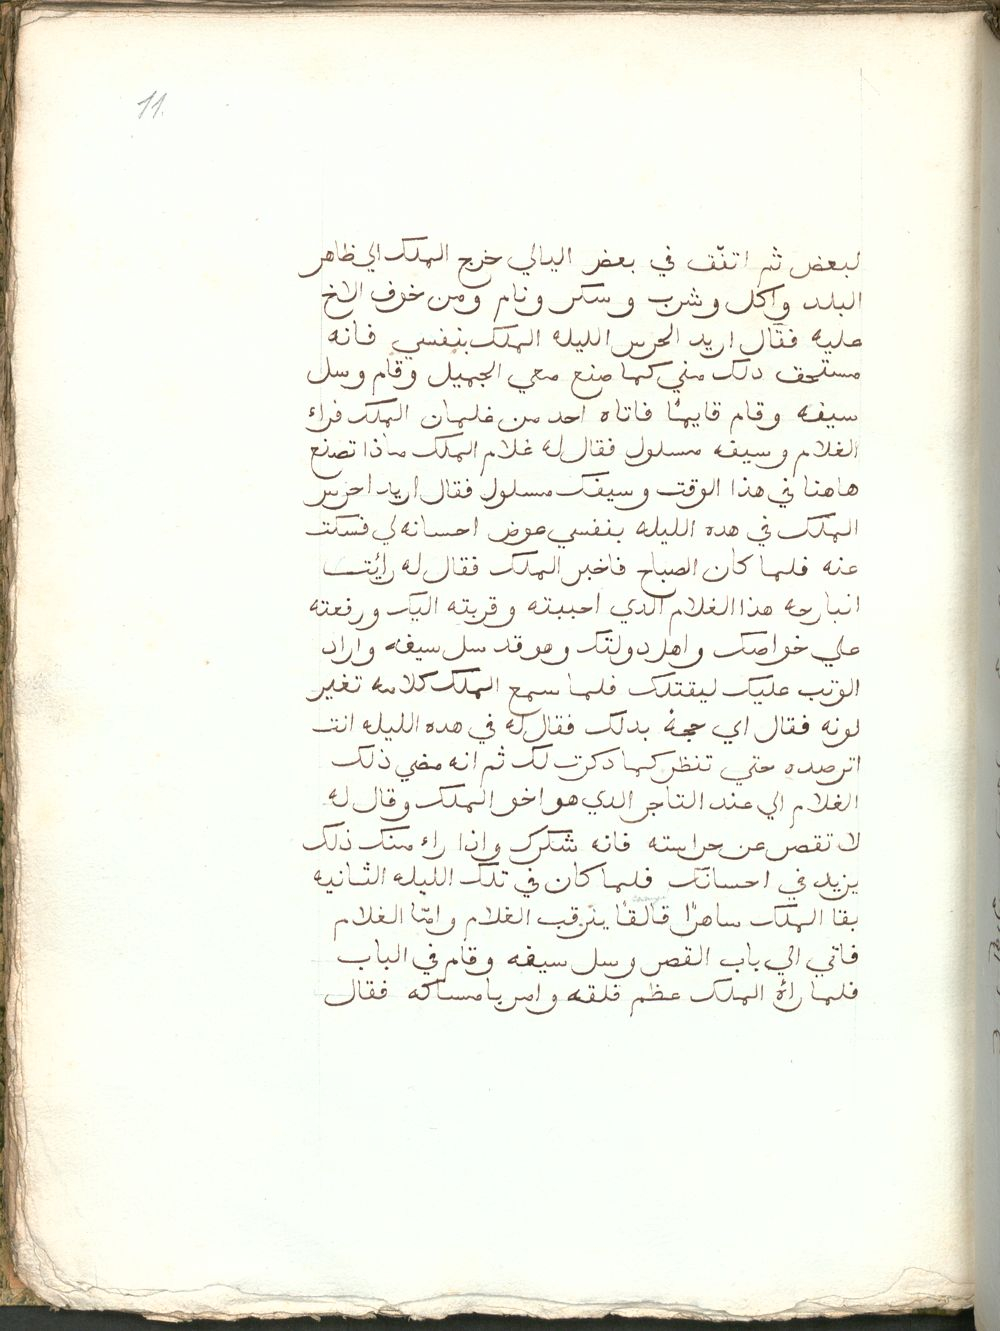 11.
لبعض ثم اتفّق في بعض اليالي خرج الملك الي ظاهر
البلد واكل وشرب وسكر ونام ومن خوف الاخ
عليه فقال اريد الحرس الليله الملك بنفسي فانه
مستحق دلك مني كما صنع معي الجميل وقام وسل
سيفه وقام قايمًا فاتاه احد من غلمان الملك فراء
الغلام وسيفه مسلول فقال له غلام الملك ماذا تصنع
هاهنا في هذا الوقت وسيفك مسلول فقال اريد احرس
الملك في هده الليله بنفسي عوض احسانه لي فسكت
عنه فلما كان الصباح فاخبر الملك فقال له رائت
انبارحه هذا الغلام الدي احببته وقربته اليك ورفعته
علي خواصك واهل دولتك وهو قد سل سيفه واراد
الوتب عليك ليقتلك فلما سمع الملك كلامه تغير
لونه فقال اي حجة بدلك فقال له في هده الليله انت
اترصده حتي تنظر كما دكرت لك ثم انه مضي ذلك
الغلام الي عند التاجر الدي هو اخو الملك وقال له
لا تقصر عن حراسته فانه شكرك واذا راء منك ذلك
يزيد في احسانك فلما كان في تلك الليله الثانيه
بقا الملك ساهرًا قالقًا يترقب الغلام وامّا الغلام
فاتي الي باب القصر وسل سيفه وقام في الباب
فلما رأه الملك عظم قلقه وامر بامساكه فقال